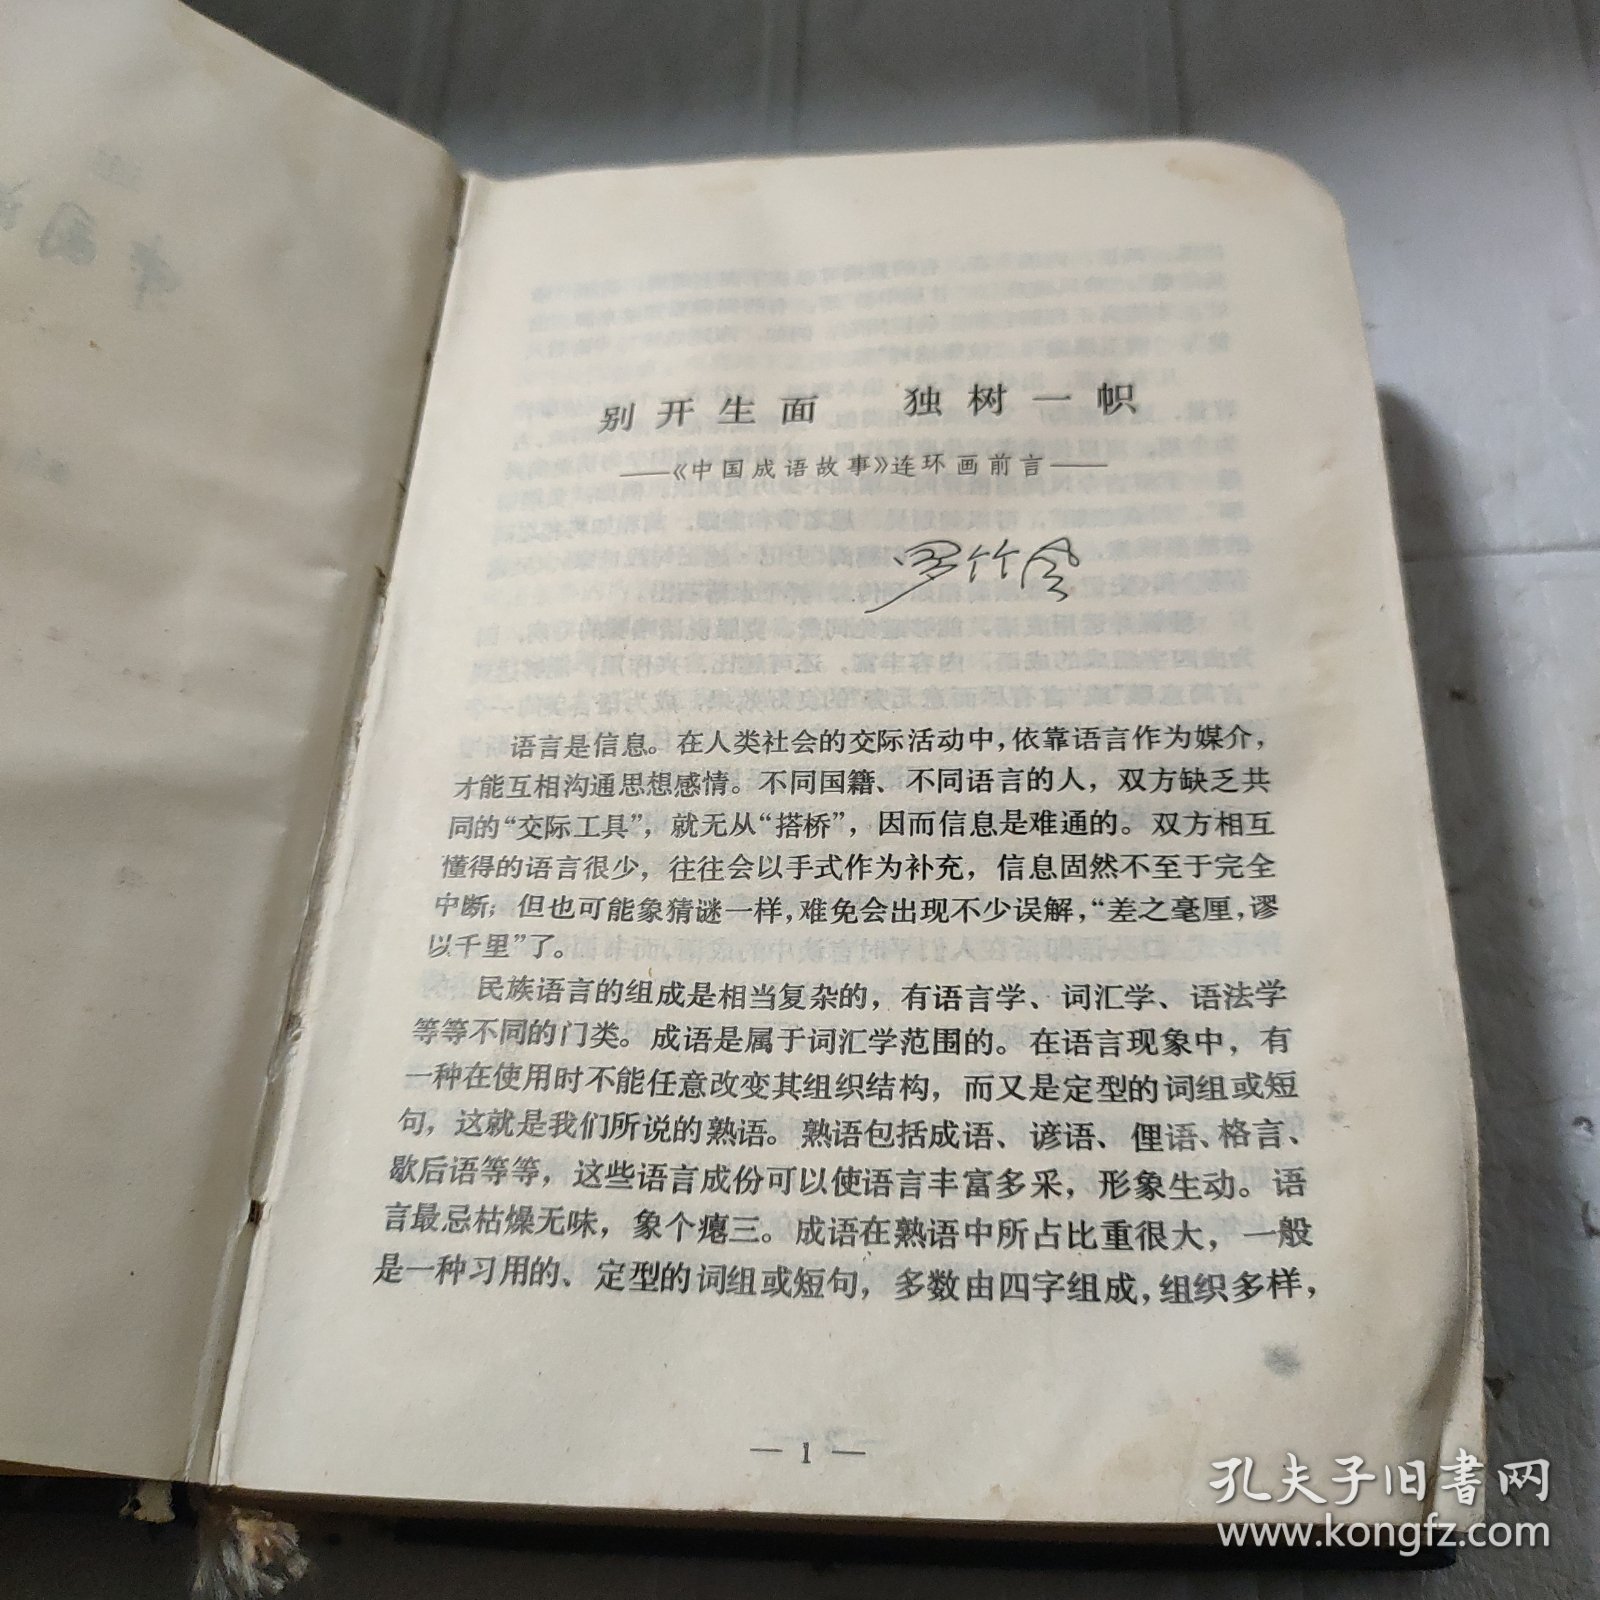 别开生面 独树一帜
——《中国成语故事》连环画前言——
罗竹风
语言是信息。在人类社会的交际活动中，依靠语言作为媒介，
才能互相沟通思想感情。不同国籍、不同语言的人，双方缺乏共
同的“交际工具”，就无从“搭桥”，因而信息是难通的。双方相互
懂得的语言很少，往往会以手式作为补充，信息固然不至于完全
中断；但也可能象猜谜一样，难免会出现不少误解，“差之毫厘，谬
以千里”了。
民族语言的组成是相当复杂的，有语言学、词汇学、语法学
等等不同的门类。成语是属于词汇学范围的。在语言现象中，有
一种在使用时不能任意改变其组织结构，而又是定型的词组或短
句，这就是我们所说的熟语。熟语包括成语、谚语、俚语、格言、
歇后语等等，这些语言成份可以使语言丰富多采，形象生动。语
言最忌枯燥无味，象个瘪三。成语在熟语中所占比重很大，一般
是一种习用的、定型的词组或短句，多数由四字组成，组织多样，
— 1 —
孔夫子旧书网
www.kongfz.com